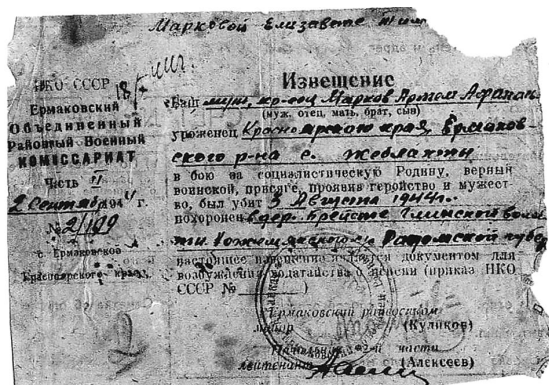 Марковой Елизавете Тим
НКО СССР
Ермаковский
Объединенный
Районный Военный
КОМИССАРИАТ
Часть II
2 Сентября 1944 г.
№ 2/199
с. Ермаковское
Красноярского края
Извещение
Ваш муж, кр-оец Марков Артем Афанас
(муж, отец, мать, брат, сын)
уроженец Красноярского края, Ермаков
ского р-на с. Жеблахты
в бою за социалистическую Родину, верный
воинской, присяге, проявив геройство и мужест-
во, был убит 3 Августа 1944 г.
похоронен в дер.
настоящее извещение является документом для
возбуждения ходатайства о пенсии (приказ НКО
СССР № )
Ермаковский райвоенком
майор (Куликов)
Начальник 2-й части
лейтенант (Алексеев)